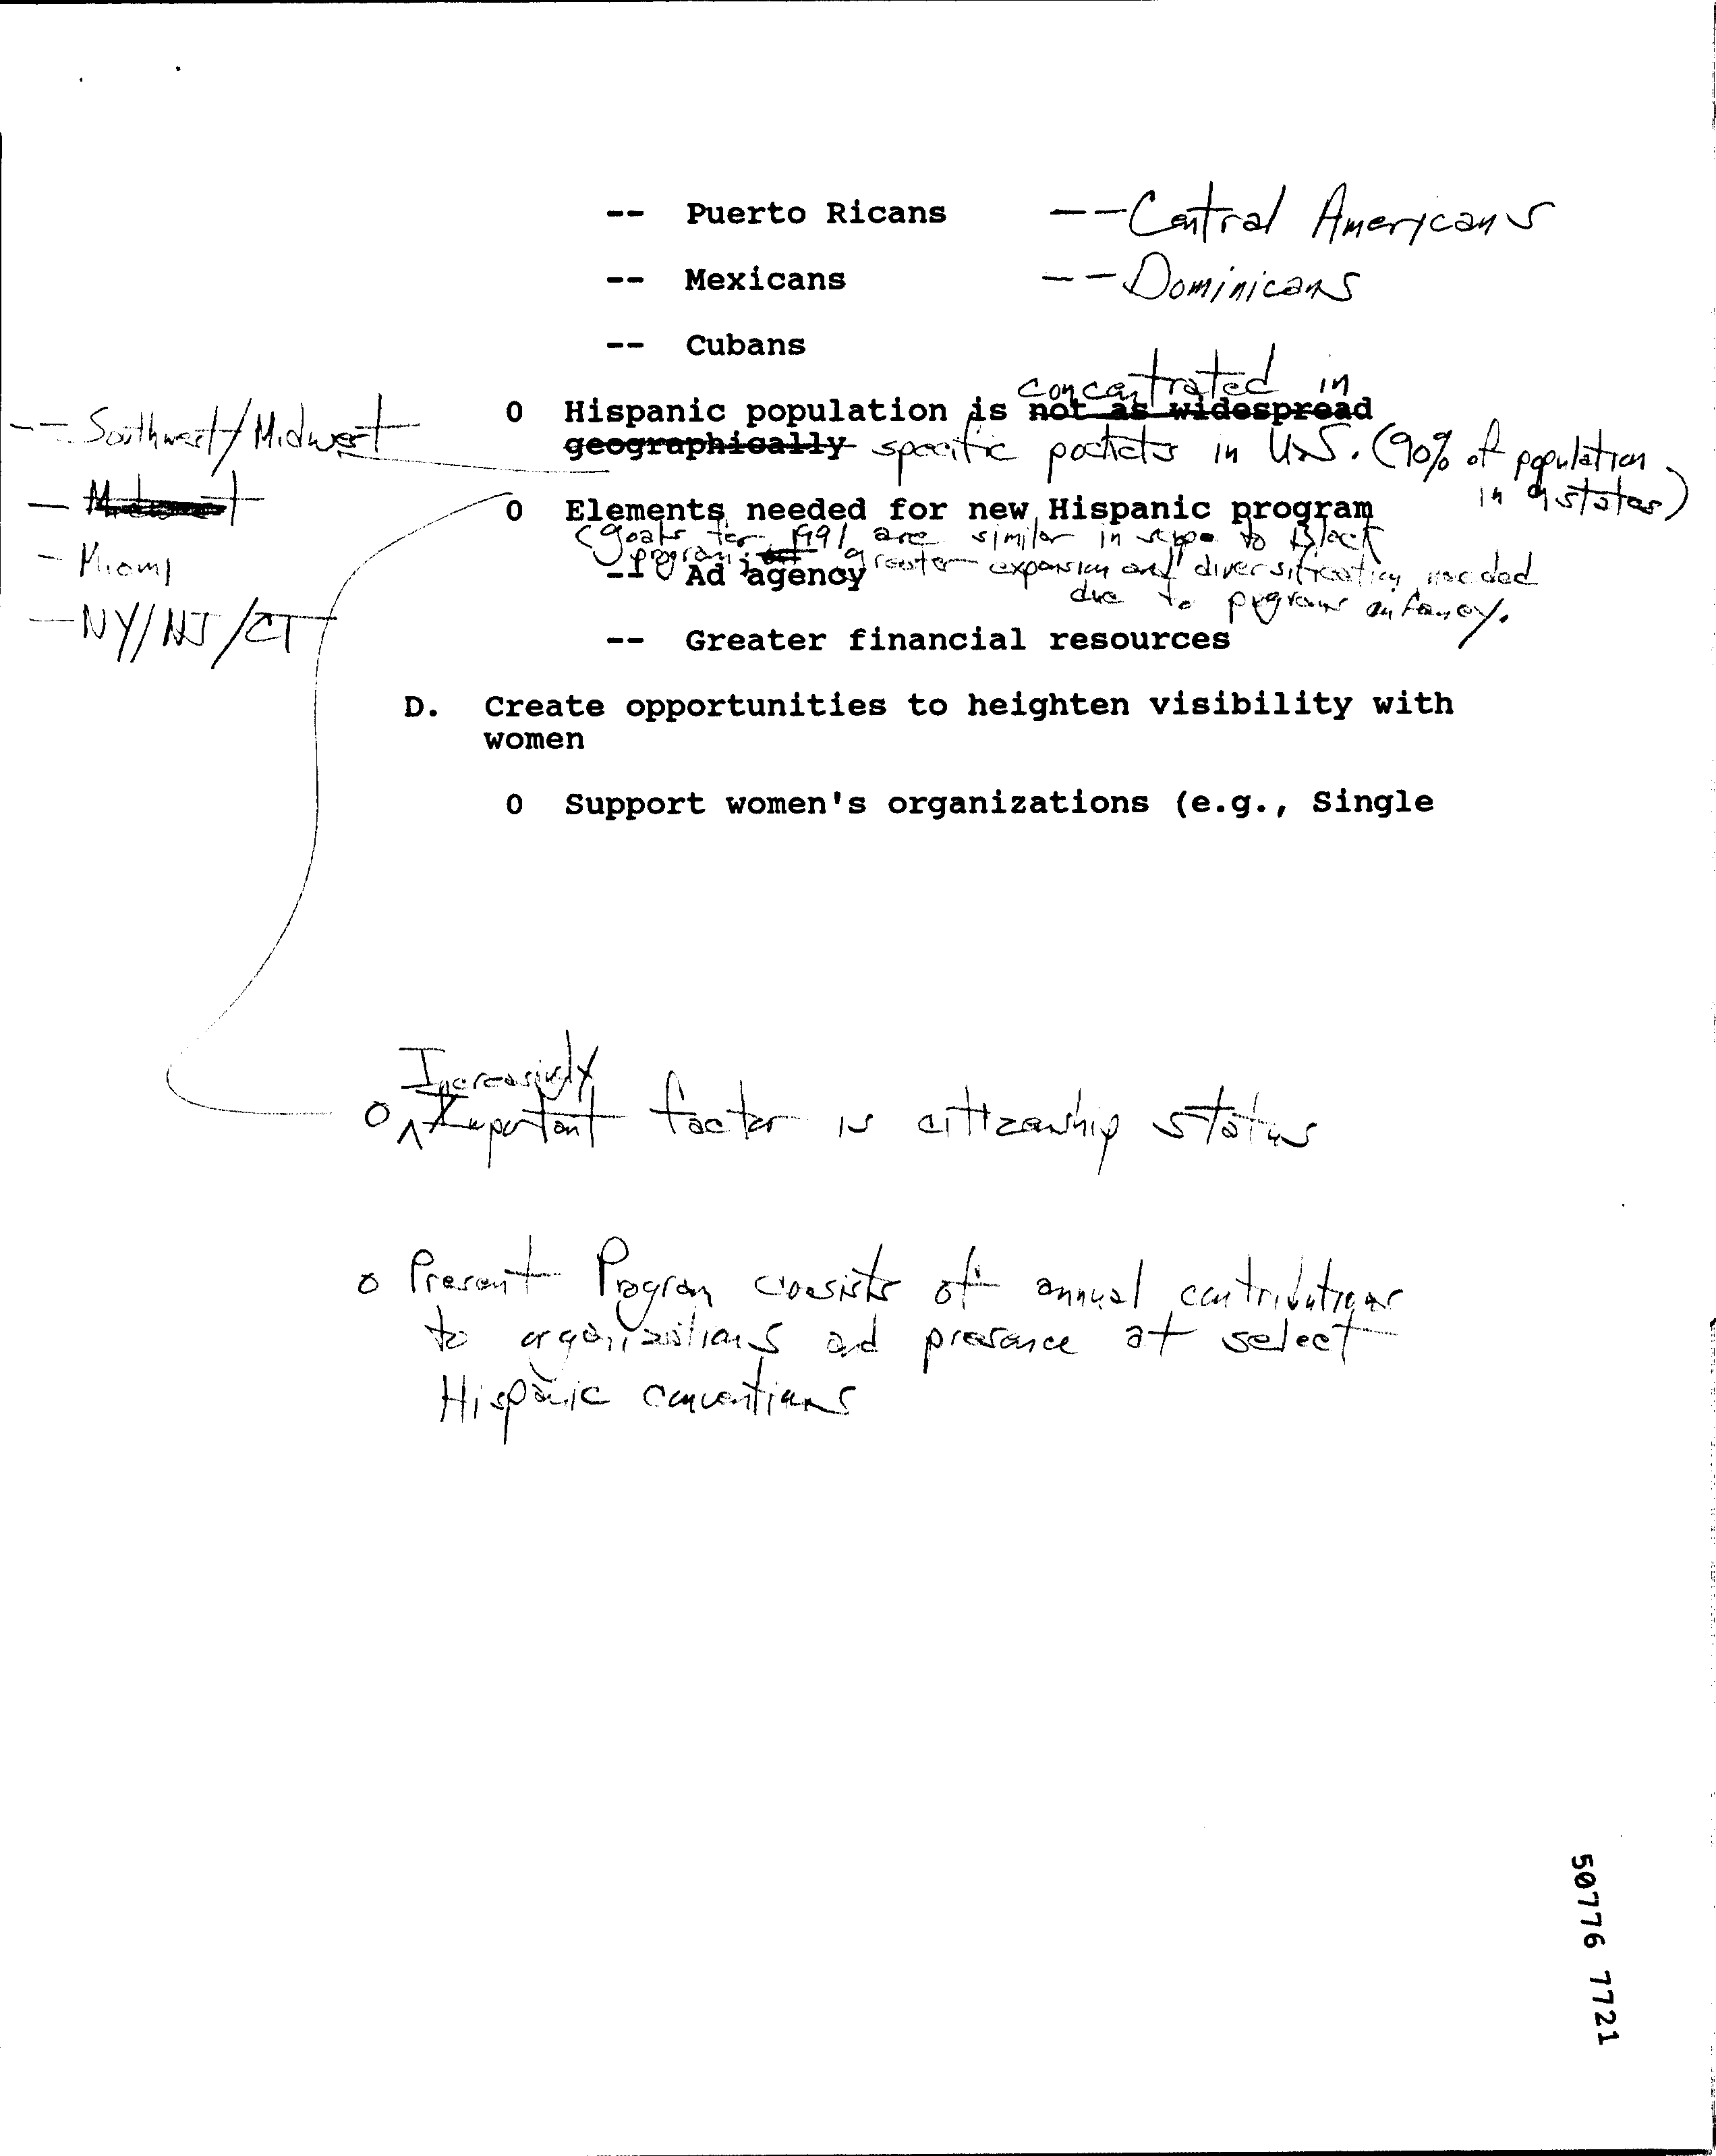 -- Puerto Ricans --Central Americans
-- Mexicans --Dominicans
-- Cubans
concentrated in
O Hispanic population is not as widespread
geographically specific pockets in U.S. (90% of population
in 9 states)
-- Southwest/Midwest
— Midwest
— Miami
— NY/NJ/CT
O Elements needed for new Hispanic program
(goals for 1991 are similar in scope to Black
program; greater expansion and diversification needed
due to programs infancy.
-- Ad agency
-- Greater financial resources
D. Create opportunities to heighten visibility with
women
O Support women's organizations (e.g., Single
Increasingly
o Important factor is citizenship status
o Present Program consists of annual contributions
to organizations and presence at select
Hispanic conventions
50776 7721